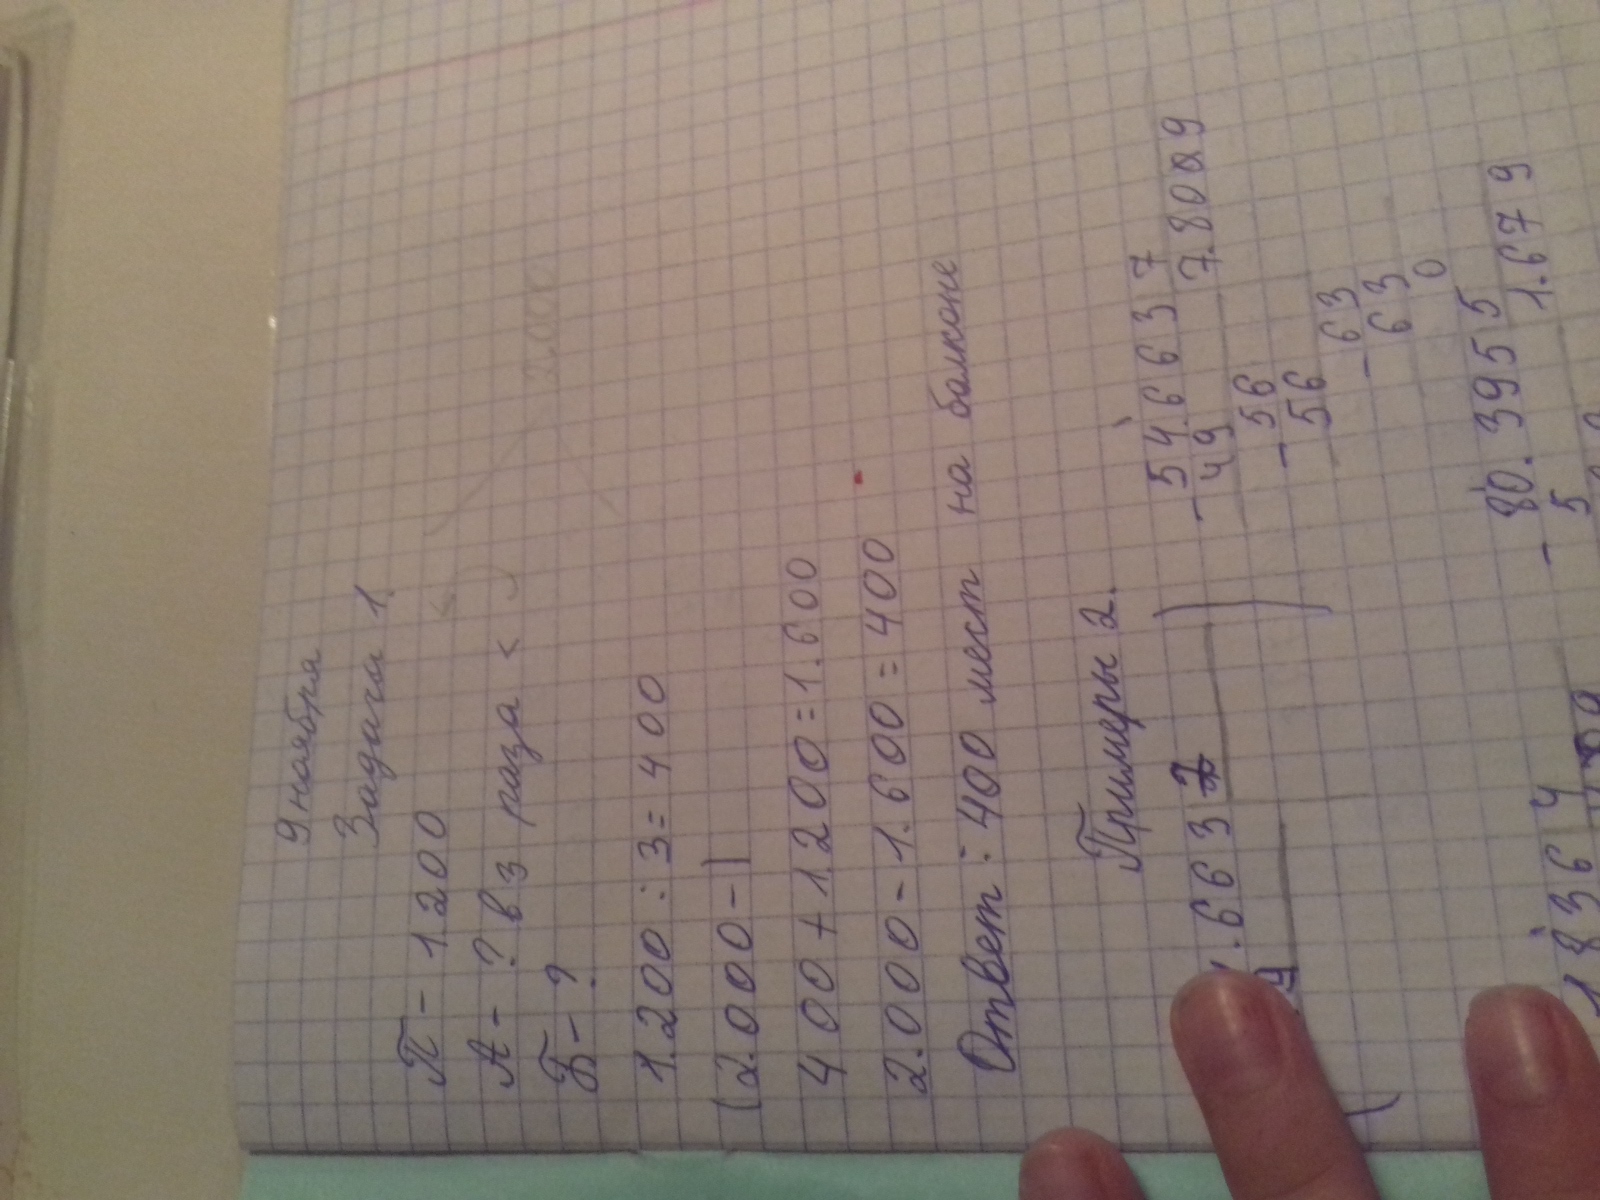 9 ноября
Задача 1.
П - 1.200
А - ? в 3 раза <
Б - ?
1.200 : 3 = 400
(2.000 - )
400 + 1.200 = 1.600
2.000 - 1.600 = 400
Ответ: 400 мест на балконе
Примеры 2.
.6637
- 54.663 7
49 7.809
- 56
56
- 63
63
0
- 80.395 5
5 1.679
18364